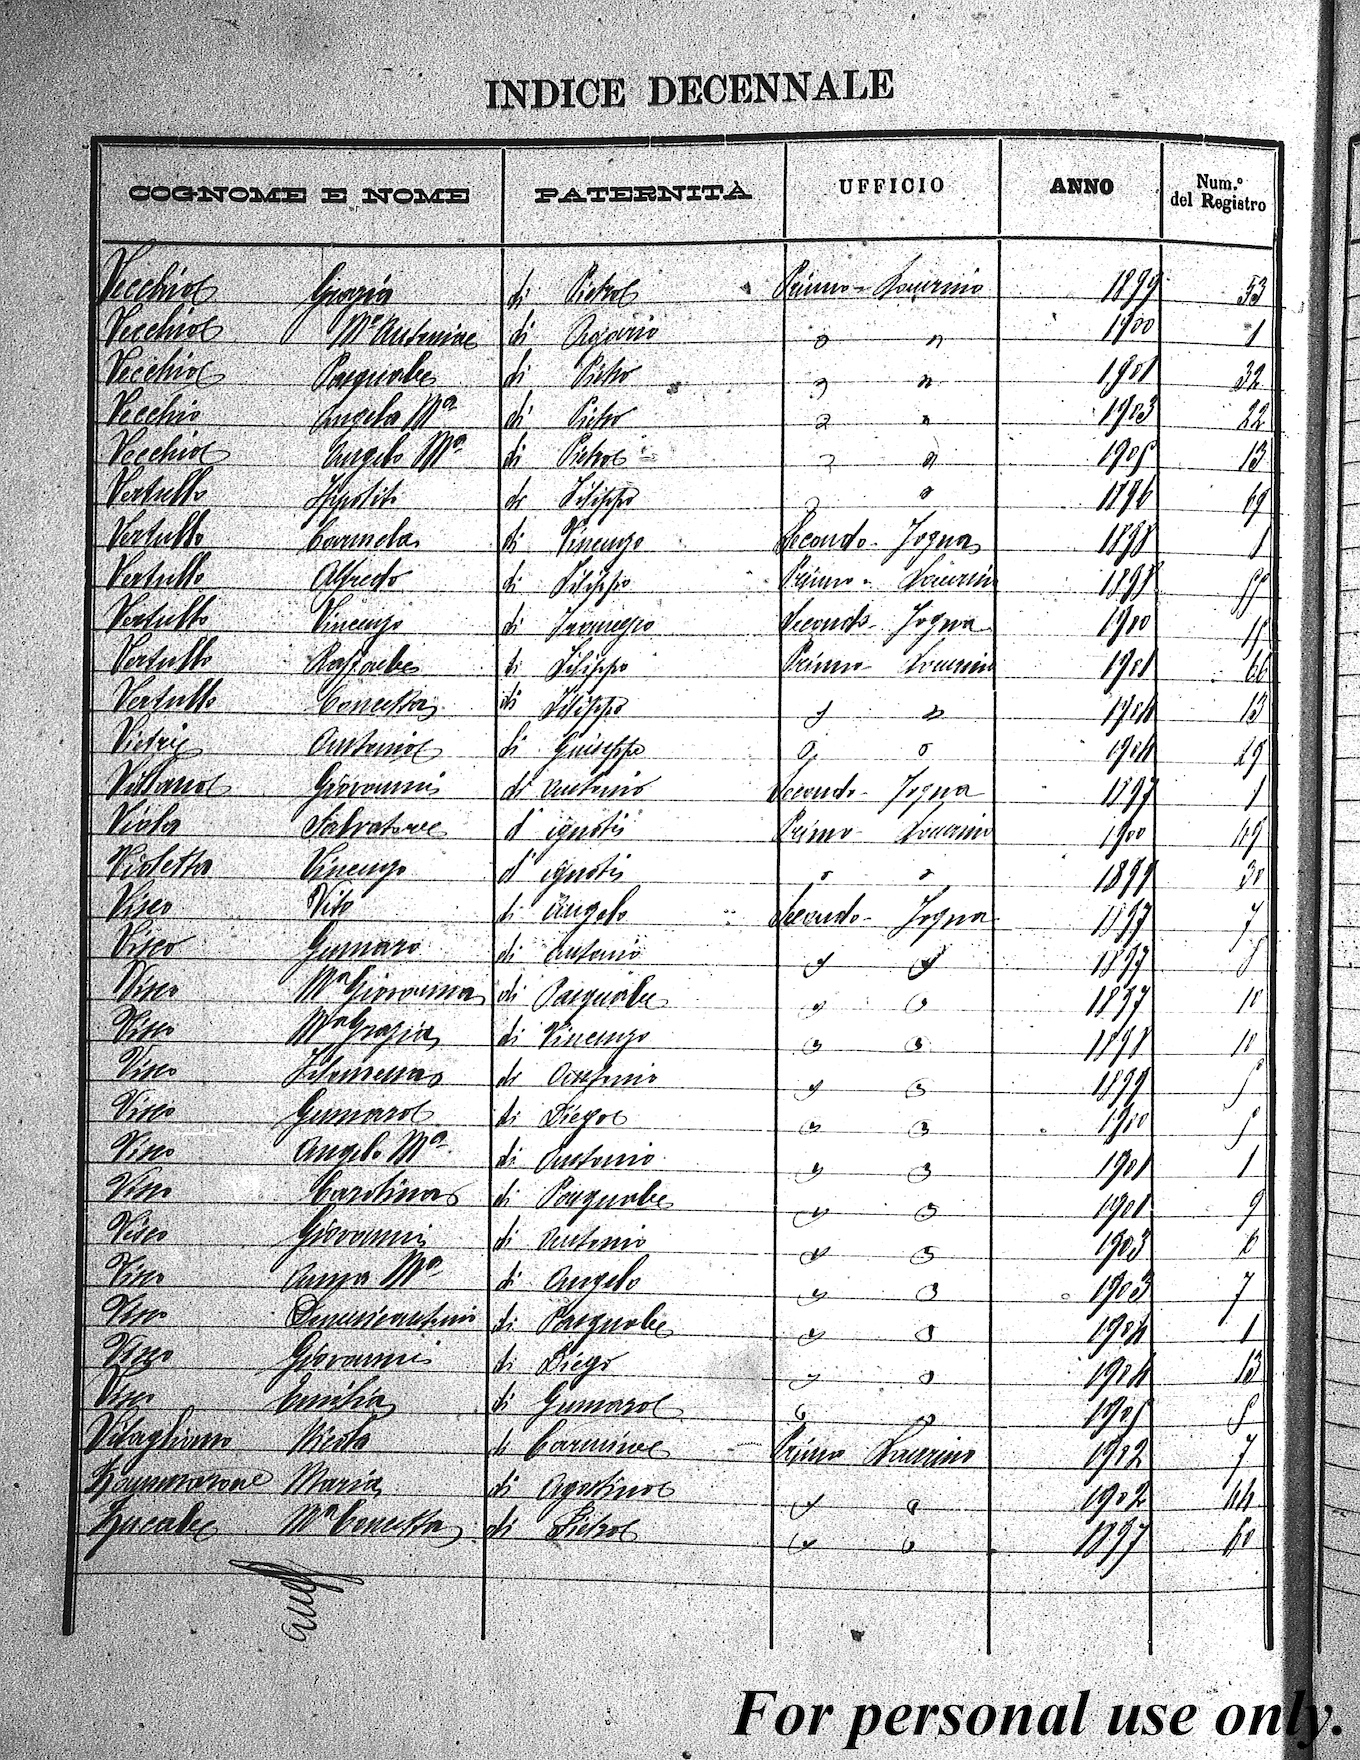 INDICE DECENNALE
COGNOME E NOME PATERNITÀ UFFICIO ANNO Num.º del Registro
Vecchio Grazia di Pietro Primo - Laurino 1899 53
Vecchio Mª Antonia di 1900 1
Vecchio Pasquale di Pietro " " 1901 32
Vecchio Angela Mª di Pietro " " 1903 22
Vecchio Angelo Mª di Pietro " " 1905 13
Vertullo di Filippo " 1896 69
Vertullo Carmela di Vincenzo Secondo - Fogna 1898
Vertullo Alfredo di Filippo Primo - Laurino 1898
Vertullo Vincenzo di Secondo - Fogna 1900
Vertullo Raffaele di Filippo Primo - Laurino 1901 66
Vertullo Concetta di Filippo " " 1904 13
Vietri Antonio di Giuseppe " " 1904 29
Villano Giovanni di Antonio Secondo - Fogna 1897 1
Viola Salvatore d' ignoti Primo - Laurino 1900 49
Violetta Vincenzo d' ignoti " " 1899 30
Visco Vito di Angelo Secondo - Fogna 1897 7
Visco Gumaro di Antonio " " 1897
Visco Mª Giovanna di Pasquale " " 1897 10
Visco Mª Grazia di Vincenzo " " 1898 10
Visco Filomena di Antonio " " 1899
Visco Gumaro di Diego " " 1900
Visco Angelo Mª di Antonio " " 1901 1
Visco Carolina di Pasquale " " 1901 9
Visco Giovanni di Antonio " " 1903 6
Visco Anna Mª di Angelo " " 1903 7
Visco di Pasquale " " 1904 1
Visco Giovanni di Diego " " 1904 13
Visco Emilia di Gumaro " " 1905
Vitagliano Nicola di Carmine Primo Laurino 1902 7
Maria di Agostino " " 1902 44
Zucale Mª Concetta di Pietro " " 1897 60
For personal use only.